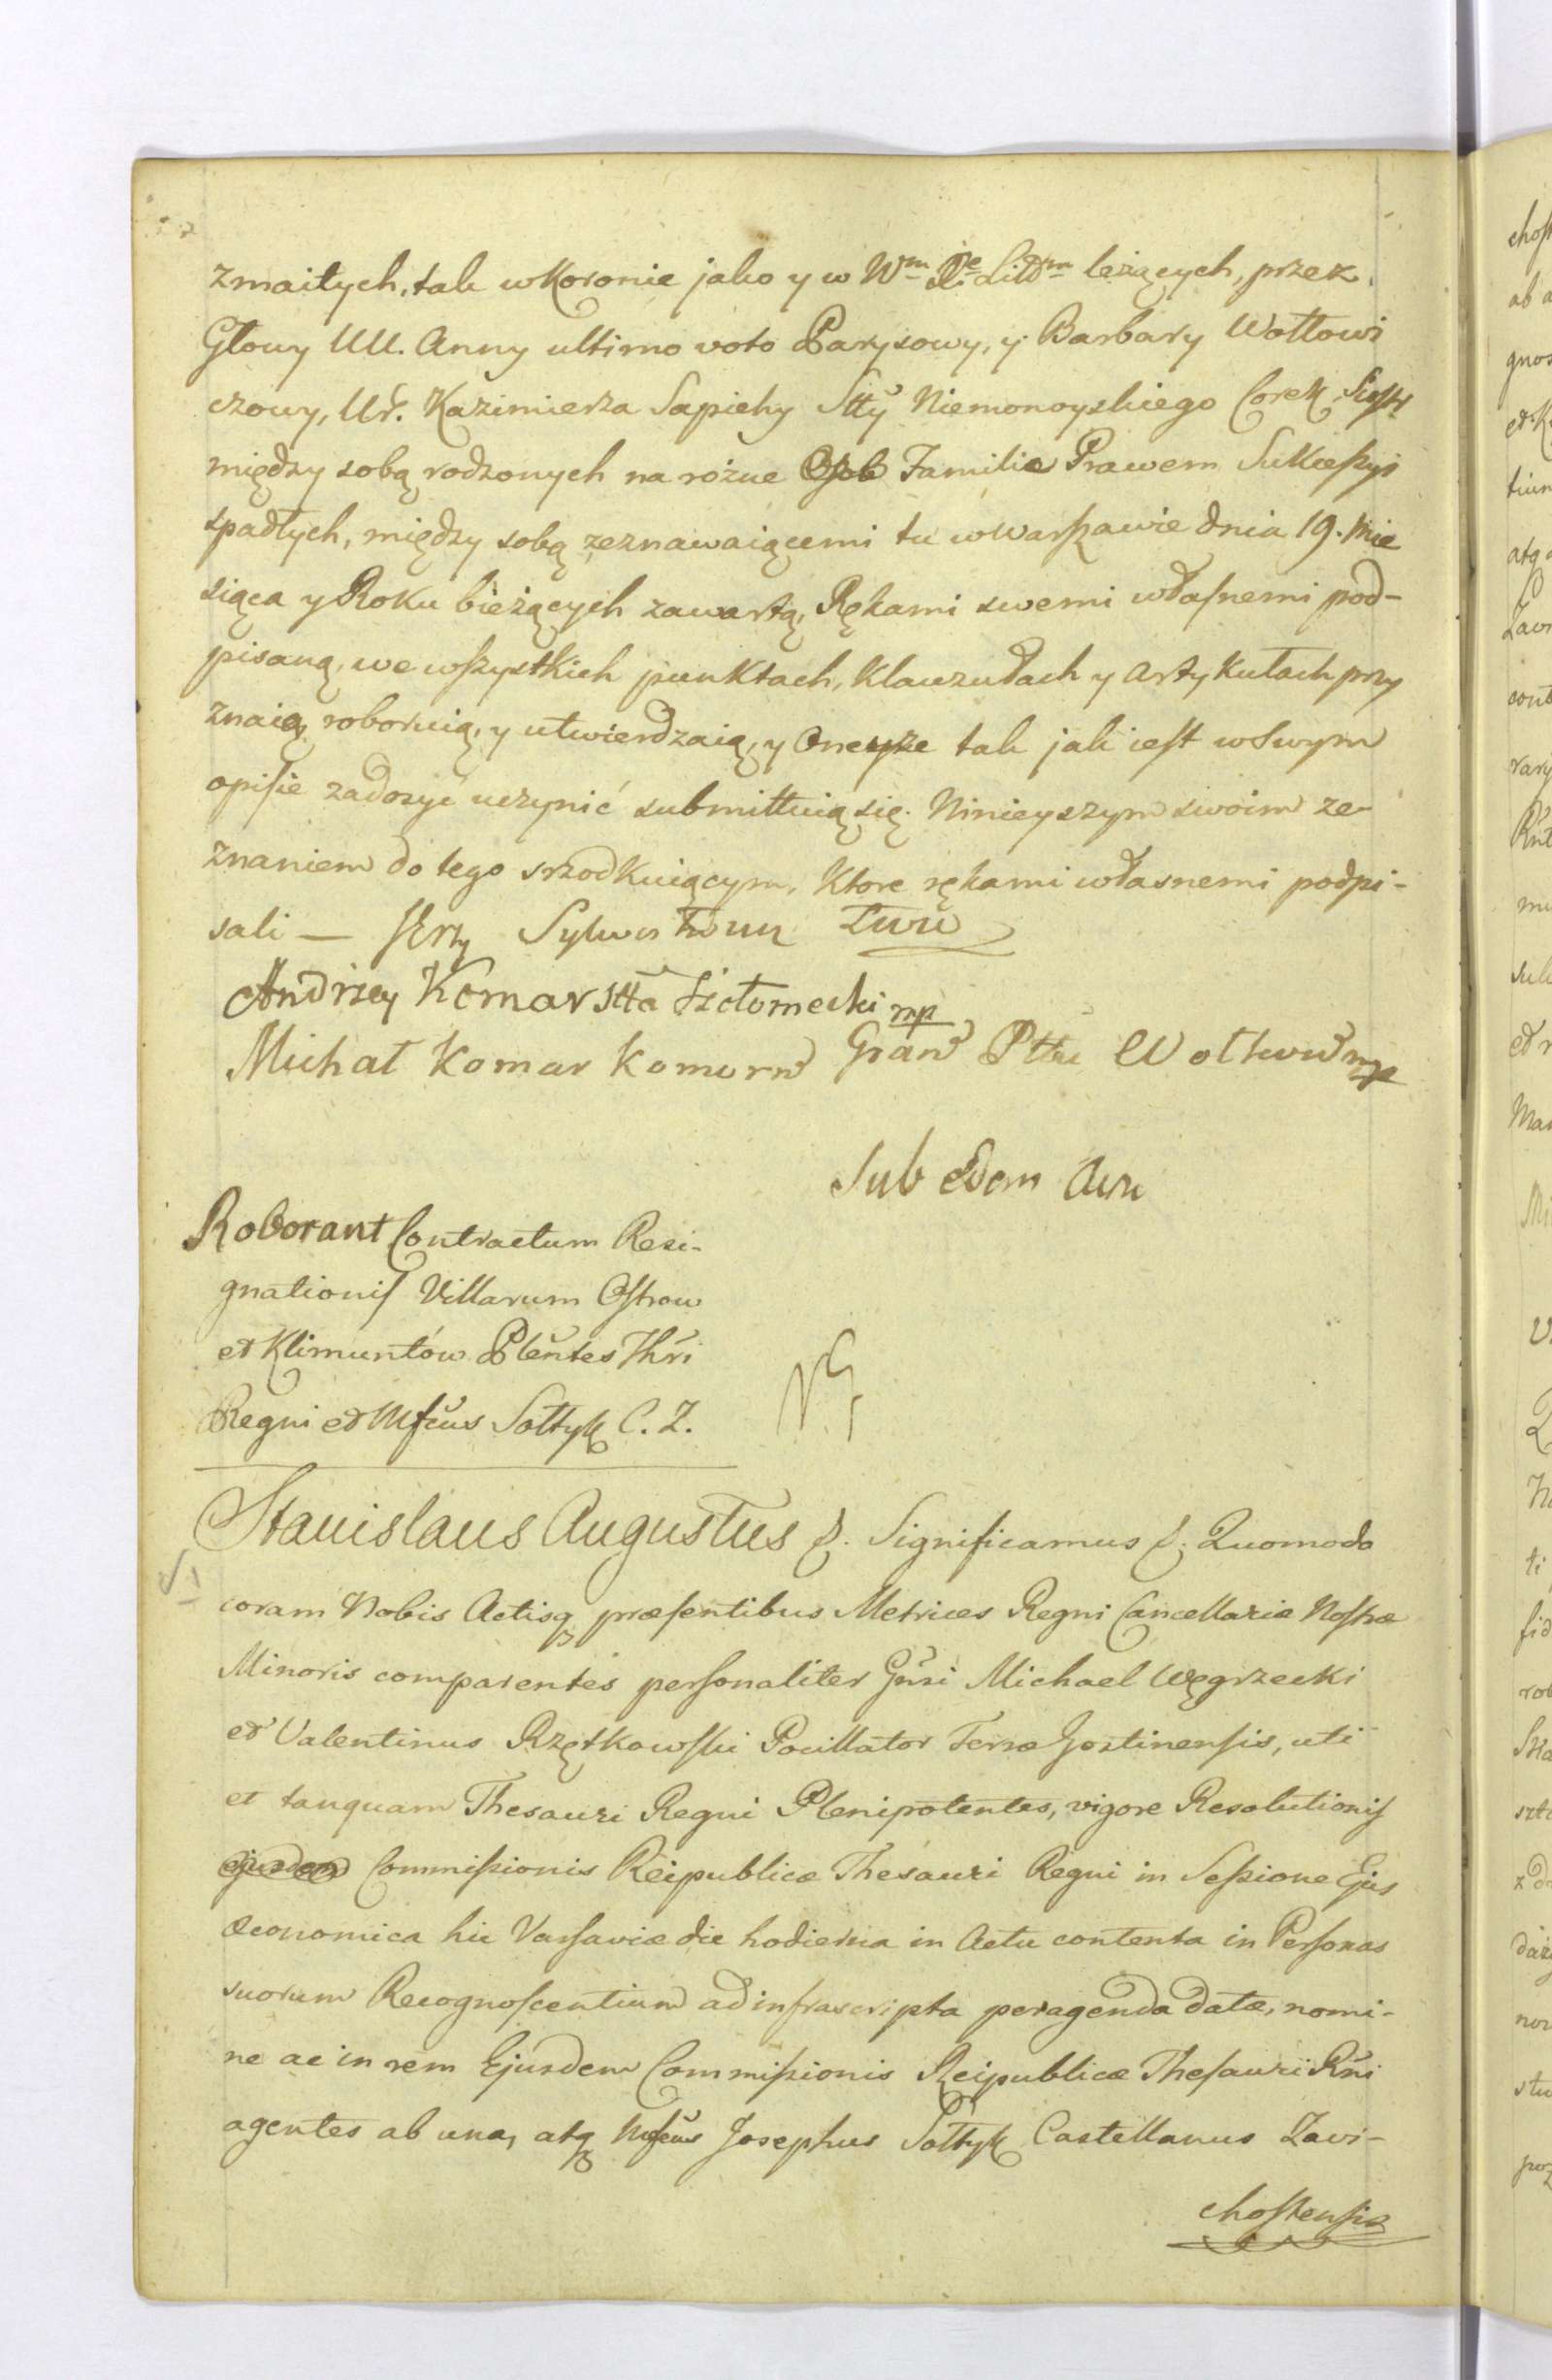 zmaitych, tak w Koronie jako y w Wm Xe Littm leżących, przez
Głowy UU. Anny ultimo voto Parysowy, y Barbary Wołłowi
czowy, Ur. Kazimierza Sapiehy Stty Niemonoyskiego Corek, Siostr
między sobą rodzonych na różne Osob Familie Prawem Sukcessyi
spadłych, między sobą zeznawaiącemi tu w Warszawie dnia 19. Mie
siąca y Roku bieżących zawartą, Rękami swemi własnemi pod-
pisaną, we wszystkich punktach, Klauzułach y Artykułach przy
znaią, roboruią, y utwierdzaią, y Oneyże tak jak iest w swym
opisie zadosyć uczynić submittuią się. Ninieyszym swoim ze-
znaniem do tego srzodkuiącym, Które rękami własnemi podpi-
sali —
Andrzey Komar Stta mp
Michał Komar Komorn Gran Pttu mp
Sub Edem Actu
Roborant Contractum Resi-
gnationis Villarum Ostrow
et Klimuntów Plentes Thri
Regni et Mfcus Sołtyk C. Z.
Stanislaus Augustus &. Significamus &. Quomodo
coram Nobis Actisq præsentibus Metrices Regni Cancellariæ Nostræ
Minoris comparentes personaliter Gnsi Michael Węgrzecki
et Valentinus Rzętkowski Pocillator Terræ Gostinensis, uti
et tanquam Thesauri Regni Plenipotentes, vigore Resolutionis
Commissionis Reipublicæ Thesauri Regni in Sessione Ejus
œconomica hic Varsaviæ die hodierna in Actu contenta in Personas
suorum Recognoscentium ad infrascripta peragenda datæ, nomi-
ne ac in rem Ejusdem Commissionis Reipublicæ Thesauri Rni
agentes ab una, atq Mfcus Josephus Sołtyk Castellanus Zavi-
chostensis